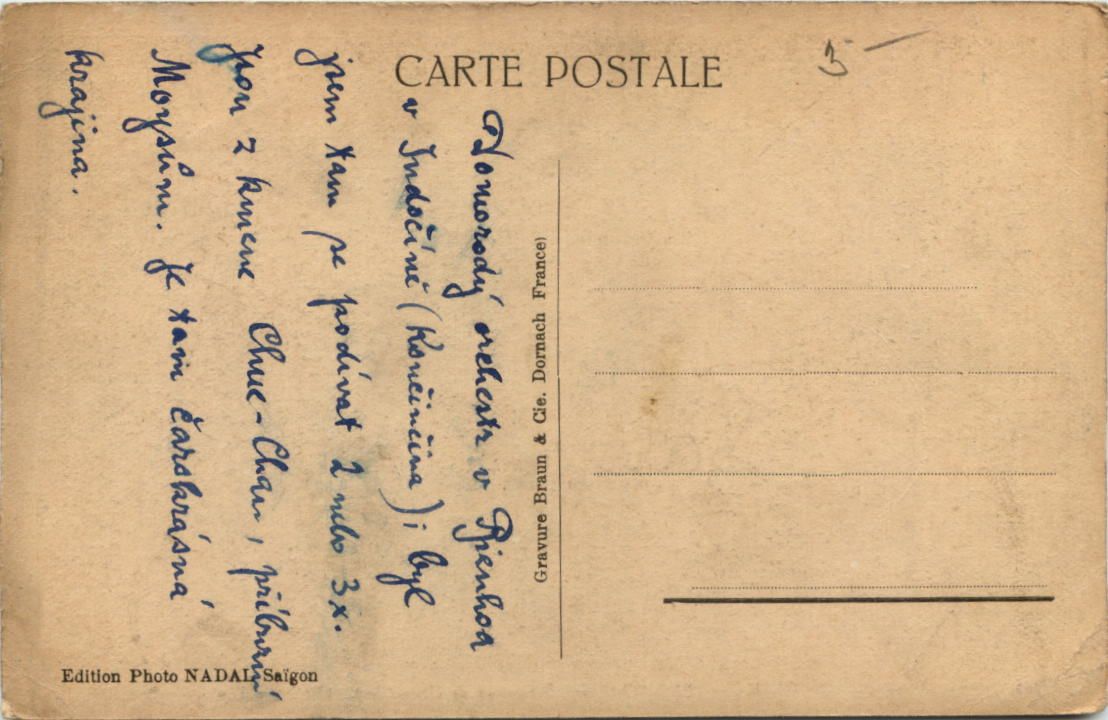 CARTE POSTALE
5 —
Domorodý orchestr v Bienhoa
v Indočíně (Končinčina); byl
jsem tam se podívat 2 nebo 3x.
Jsou z kmene Chue-Chau, příbuzní
Moysům. Je tam čarokrásná
krajina.
Gravure Braun & Cie. Dornach France)
Edition Photo NADAL Saïgon